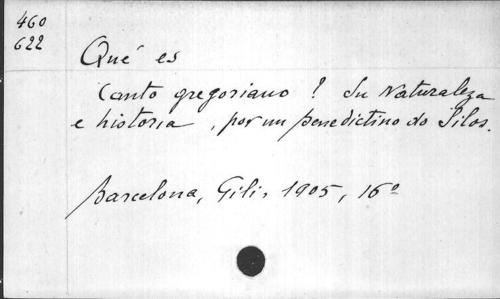 460
622
Qué es
Canto gregoriano ? Su Naturaleza
e historia , por un benedictino do Silos.
Barcelona, Gili, 1905, 16º